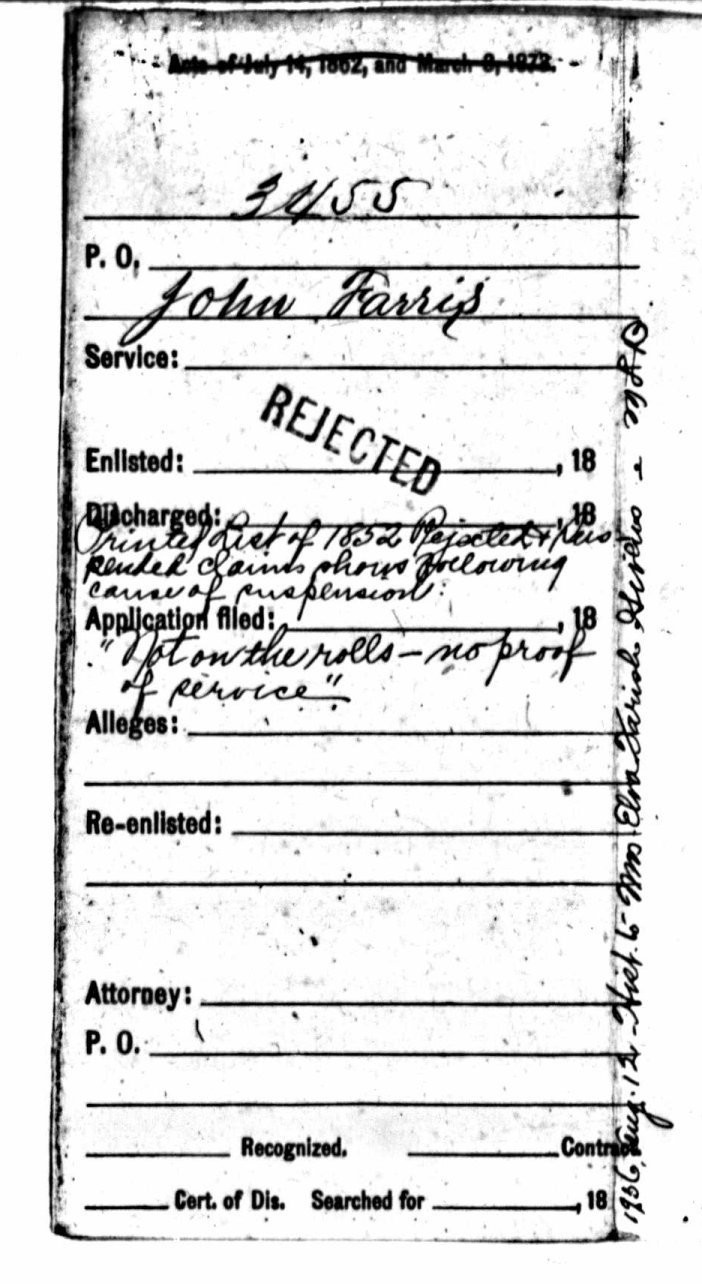 Acts of July 14, 1862, and March 3, 1873.
3455
P. O.,
John Farris
Service:
REJECTED
Enlisted: , 18
Discharged: , 18
Printed List of 1852 Rejected & Sus
pended claims shows following
cause of suspension:
Application filed: , 18
"Not on the rolls – no proof
of service".
Alleges:
Re-enlisted:
Attorney:
P. O.
Recognized. Contract
Cert. of Dis. Searched for , 18
1936, Aug. 12 - Hist. to Mrs Elva Farish